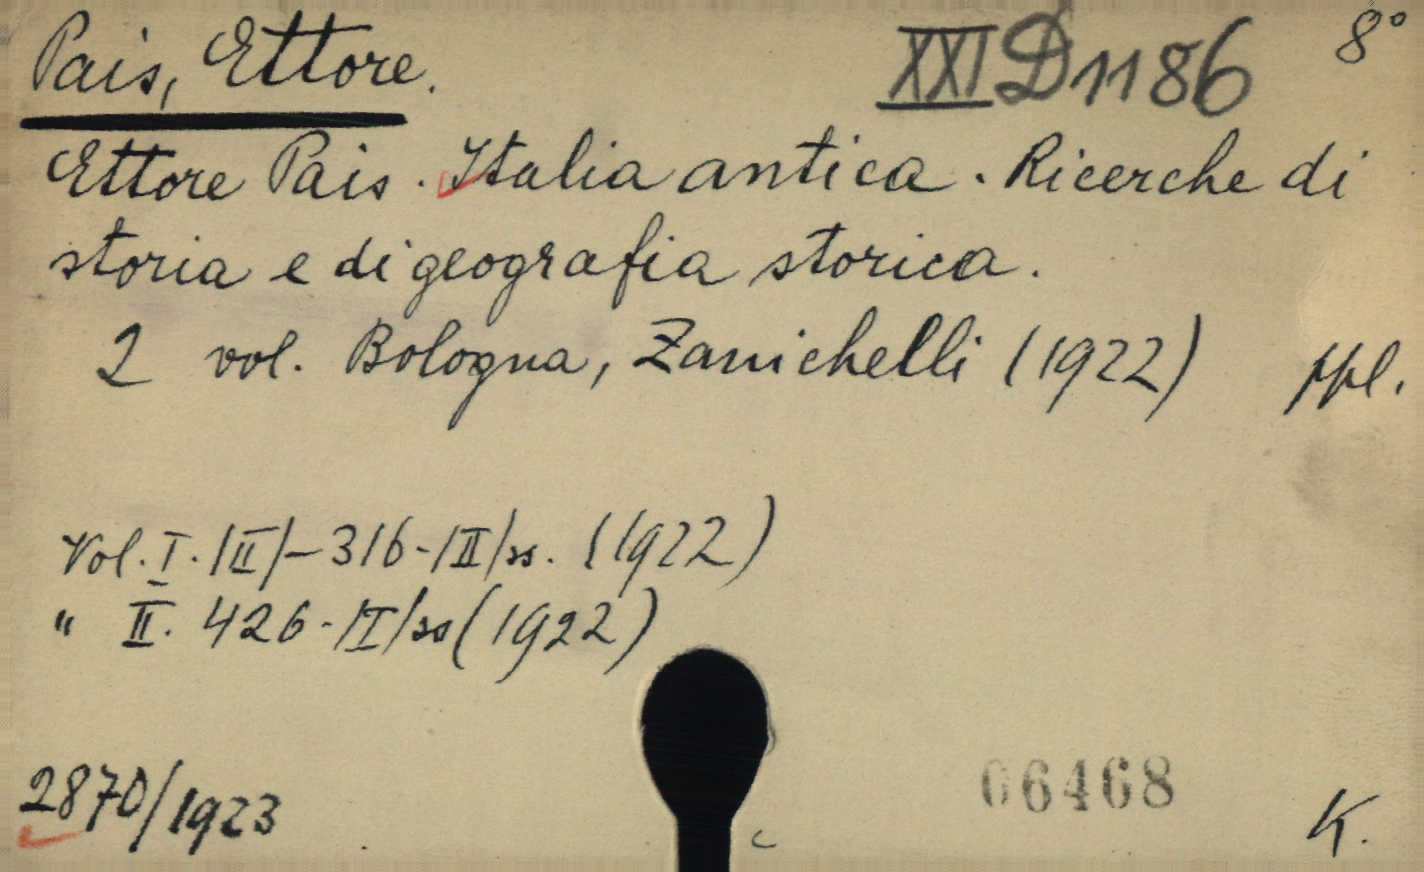 Pais, Ettore. XXI D 1186 8°
Ettore Pais. Italia antica. Ricerche di
storia e di geografia storica.
2 vol. Bologna, Zanichelli (1922) ppl.
Vol. I. |II|-316-|II| ss. (1922)
" II. 426-|I| ss (1922)
2870/1923
06468
K.